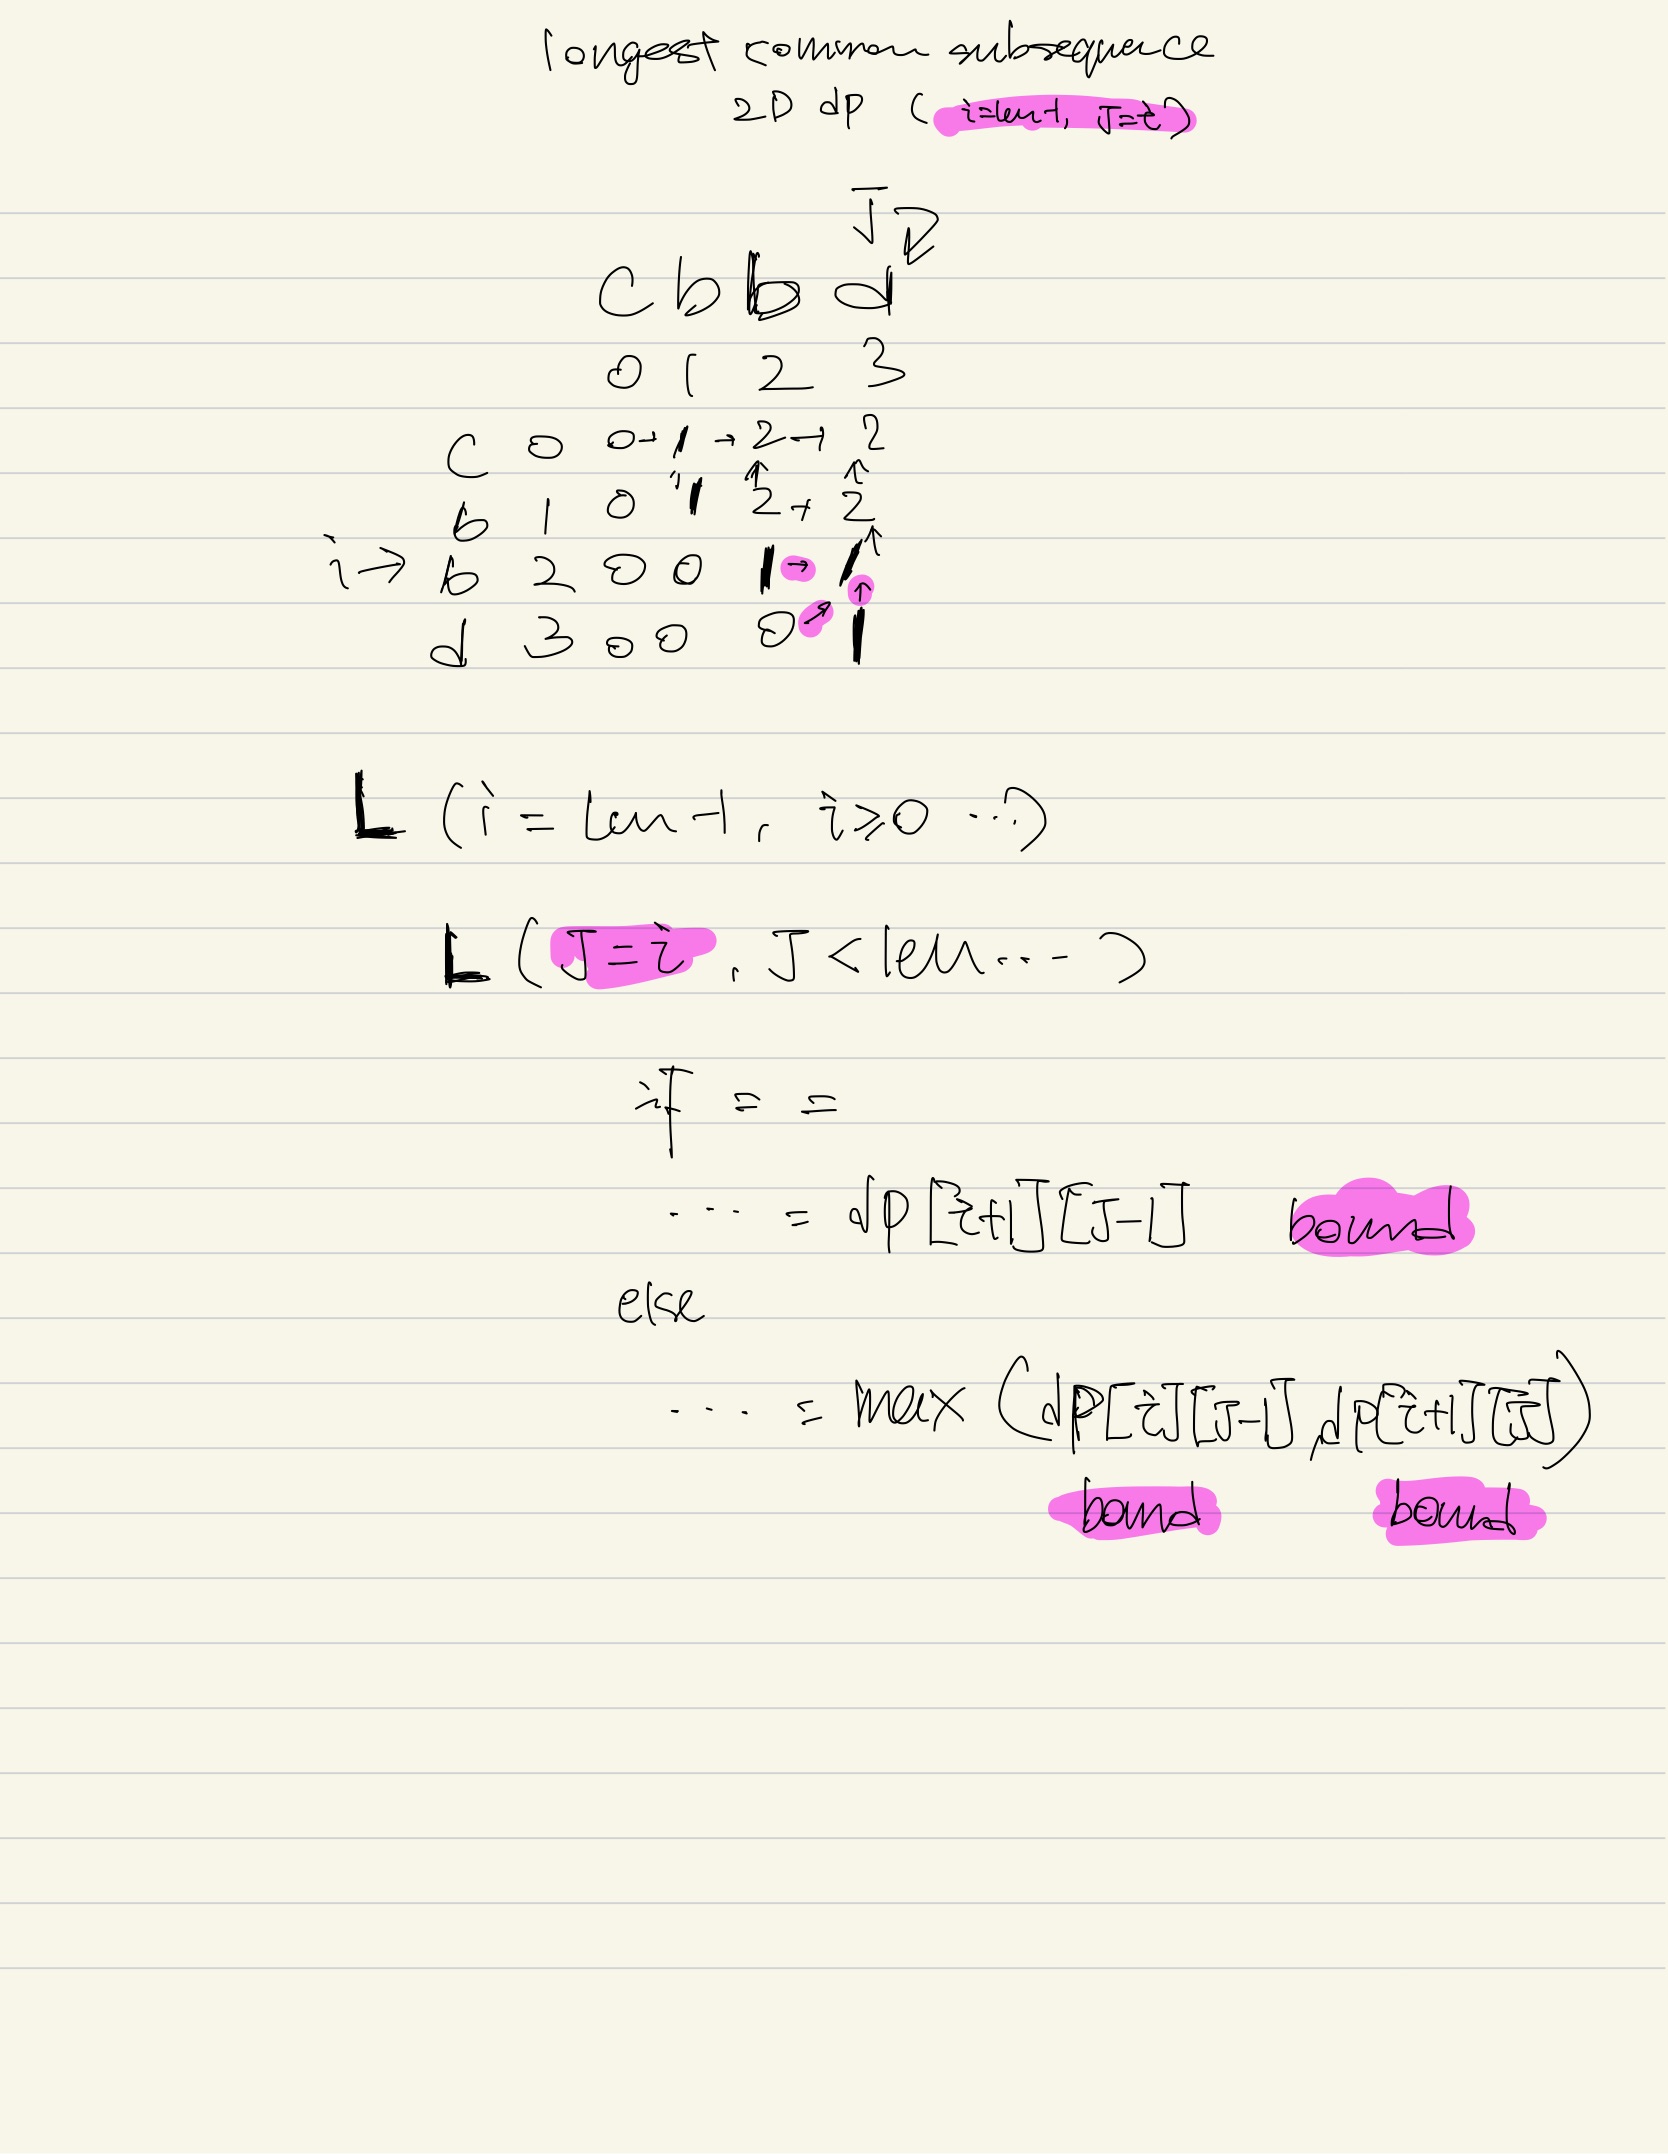 longest common subsequence
2D dp (i=len-1, J=i)
J
c b b d
0 1 2 3
c 0 0→1→2→2
b 1 0 1 2→2
i→ b 2 0 0 1→1
d 3 0 0 0 1
L (i = len-1, i≥0 ...)
L (J=i, J<len....)
if = =
... = dp[i+1][J-1] bound
else
... = max (dp[i][J-1], dp[i+1][J])
bound bound